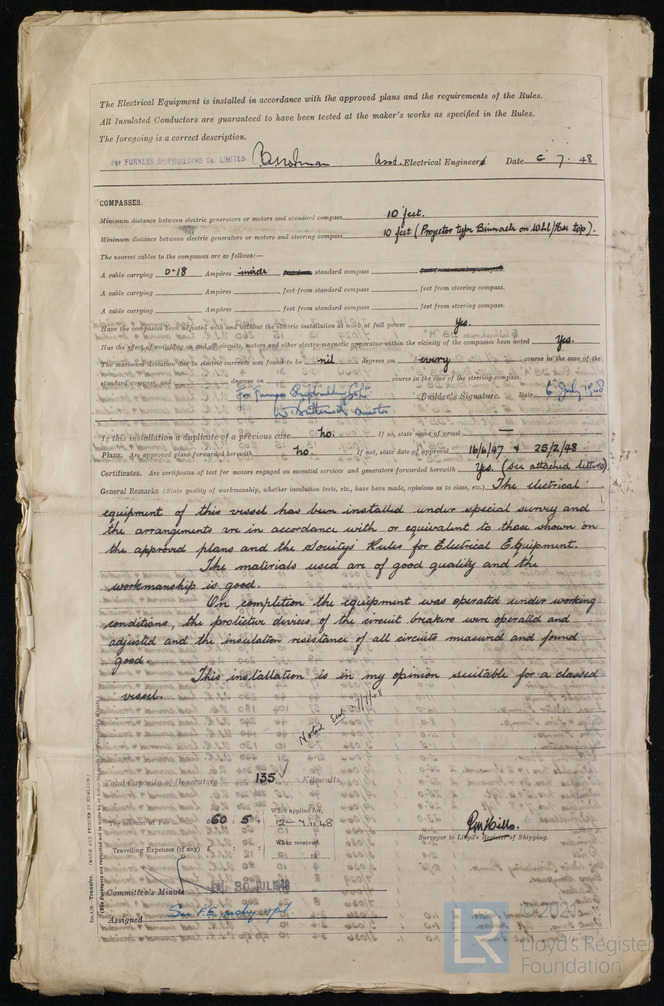 The Electrical Equipment is installed in accordance with the approved plans and the requirements of the Rules.
All Insulated Conductors are guaranteed to have been tested at the maker's works as specified in the Rules.
The foregoing is a correct description.
Per FURNESS SHIPBUILDING Co. LIMITED Asst. Electrical Engineer Date 6 7. 48
COMPASSES.
Minimum distance between electric generators or motors and standard compass 10 feet.
Minimum distance between electric generators or motors and steering compass 10 feet (Projector type Binnacle on Whl/Hse top).
The nearest cables to the compasses are as follows:—
A cable carrying 0-18 Ampères inside standard compass
A cable carrying Ampères feet from standard compass feet from steering compass.
A cable carrying Ampères feet from standard compass feet from steering compass.
Have the compasses been adjusted with and without the electric installation at work at full power Yes.
Has the effect of switching on and off circuits, motors and other electro-magnetic apparatus within the vicinity of the compasses been noted Yes.
The maximum deviation due to electric currents was found to be nil degrees on every course in the case of the
standard compass, and degrees on course in the case of the steering compass.
Builder's Signature. Date 6 July 1948
Is this installation a duplicate of a previous case no. If so, state name of vessel —
Plans. Are approved plans forwarded herewith no. If not, state date of approval 16/6/47 & 25/2/48
Certificates. Are certificates of test for motors engaged on essential services and generators forwarded herewith Yes. (see attached letters)
General Remarks (State quality of workmanship, whether insulation tests, etc., have been made, opinions as to class, etc.) The electrical
equipment of this vessel has been installed under special survey and
the arrangements are in accordance with or equivalent to those shown on
the approved plans and the Society's Rules for Electrical Equipment.
The materials used are of good quality and the
workmanship is good.
On completion the equipment was operated under working
conditions, the protective devices of the circuit breakers were operated and
adjusted and the insulation resistance of all circuits measured and found
good.
This installation is in my opinion suitable for a classed
vessel.
Noted
Total Capacity of Generators 135 Kilowatts.
The amount of Fee £60 : 5 : When applied for, 12-7.1948
Travelling Expenses (if any) £ : : When received, 19
Surveyor to Lloyd's Register of Shipping.
Committee's Minute FRI. 30 JUL 1948
Assigned See F.E. mchy rpt.
© 2021
LR
Lloyd's Register
Foundation